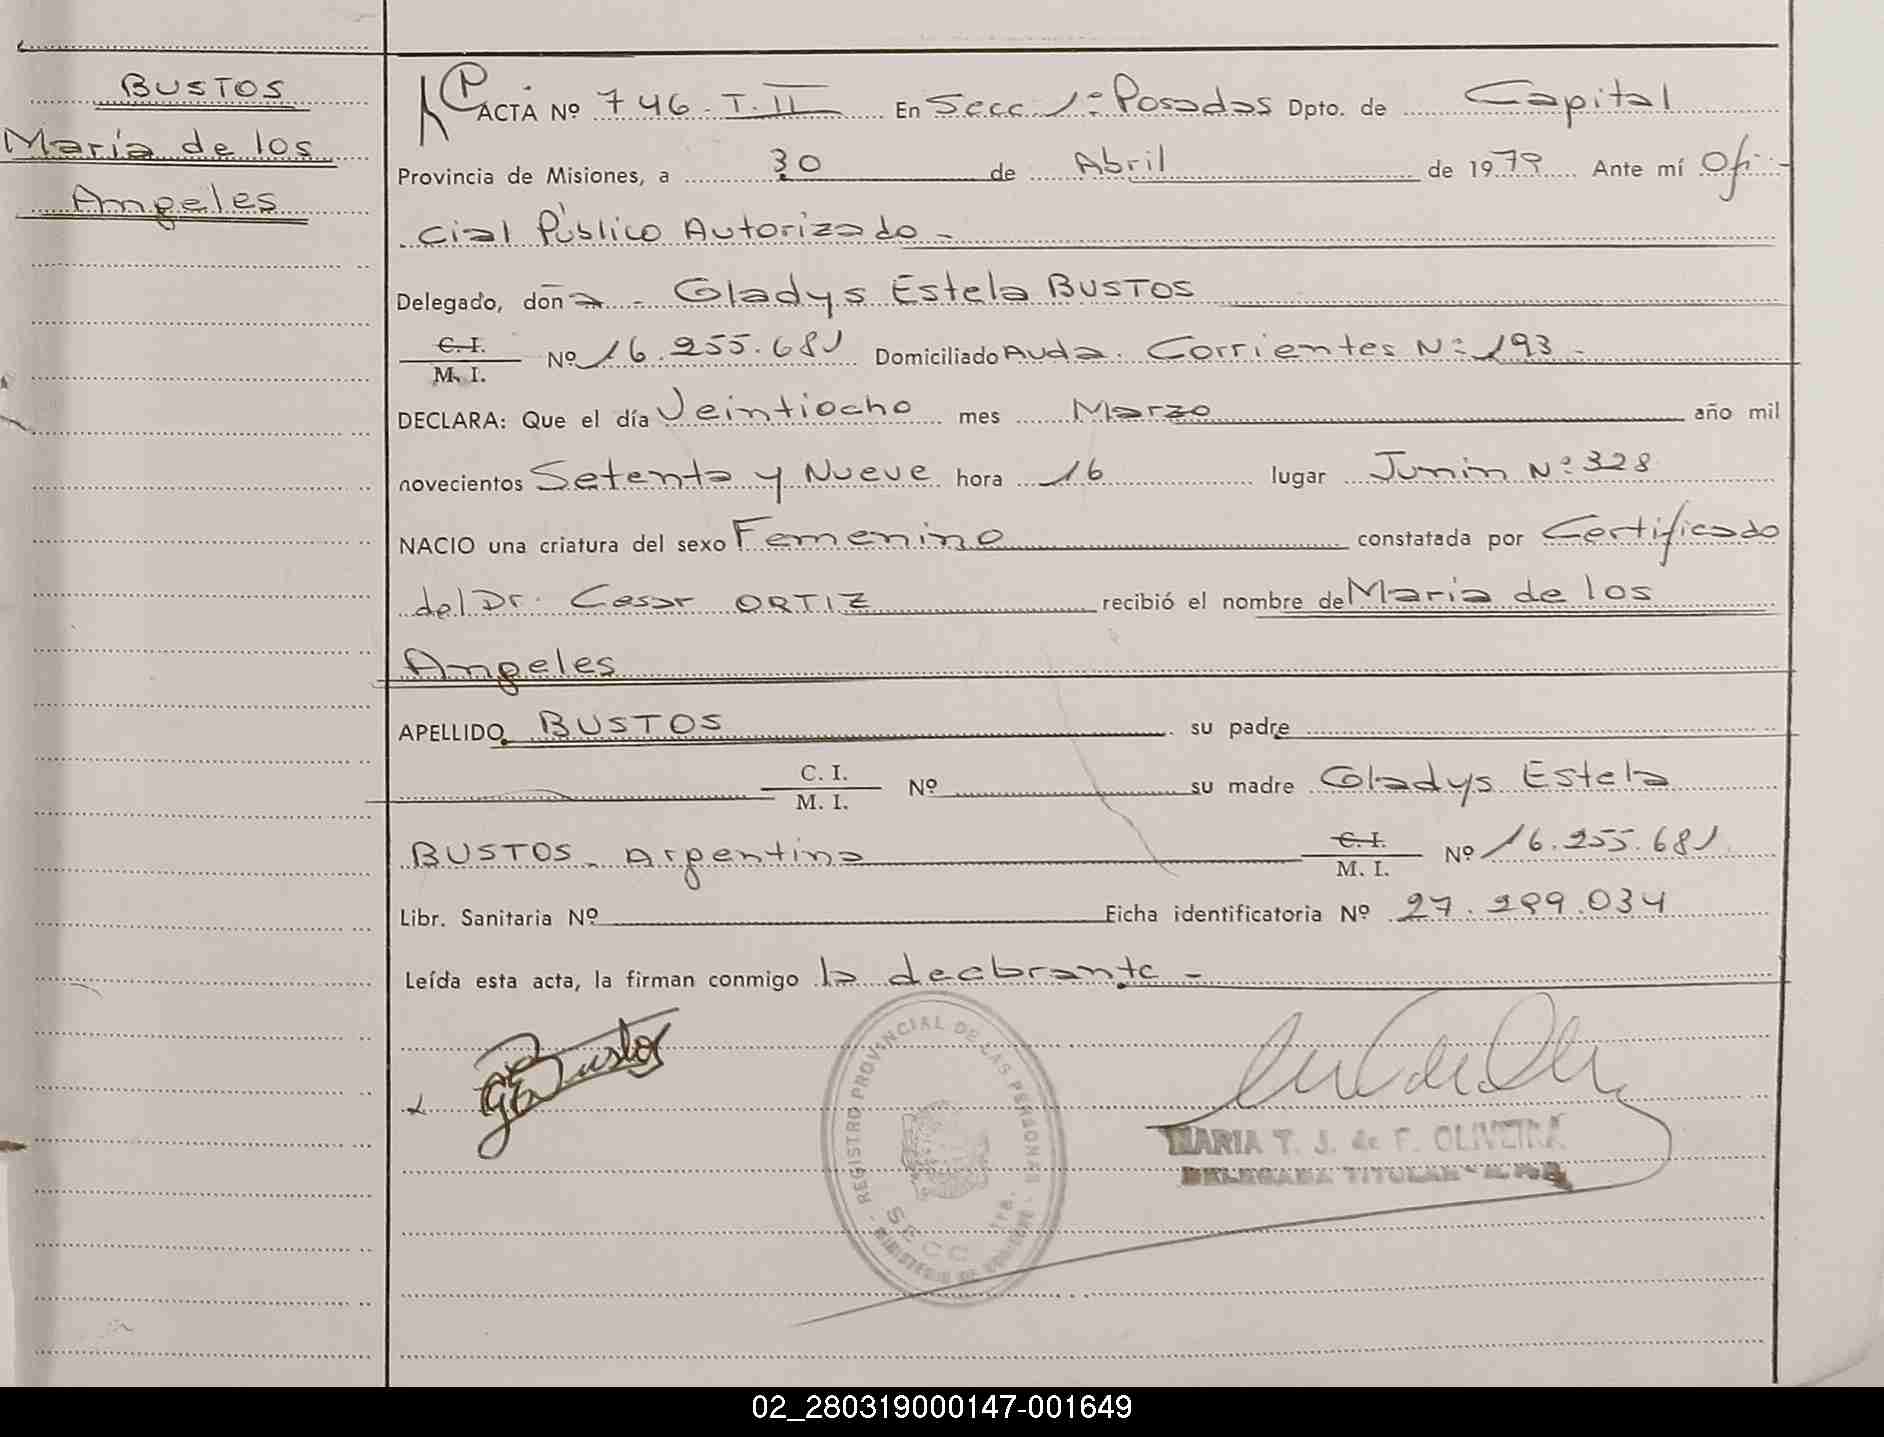 BUSTOS
María de los
Angeles
ACTA Nº 746. T. II En Secc 1º Posadas Dpto. de Capital
Provincia de Misiones, a 30 de Abril de 1979 Ante mí Ofi-
cial Público Autorizado -
Delegado, doña - Gladys Estela BUSTOS
C. I.
M. I. Nº 16.255.681 Domiciliado Avda. Corrientes Nº 193 -
DECLARA: Que el día Veintiocho mes Marzo año mil
novecientos Setenta y Nueve hora 16 lugar Junin Nº 328
NACIO una criatura del sexo Femenino constatada por Certificado
del Dr. Cesar ORTIZ recibió el nombre de María de los
Angeles
APELLIDO BUSTOS su padre
C. I.
M. I. Nº su madre Gladys Estela
BUSTOS - Argentina C. I.
M. I. Nº 16.255.681
Libr. Sanitaria Nº Ficha identificatoria Nº 27.299.034
Leída esta acta, la firman conmigo la declarante -
GEBustos
REGISTRO PROVINCIAL DE LAS PERSONAS
SECC 1ra.
MINISTERIO DE
MARIA T. J. de F. OLIVEIRA
DELEGADA TITULAR
02_280319000147-001649